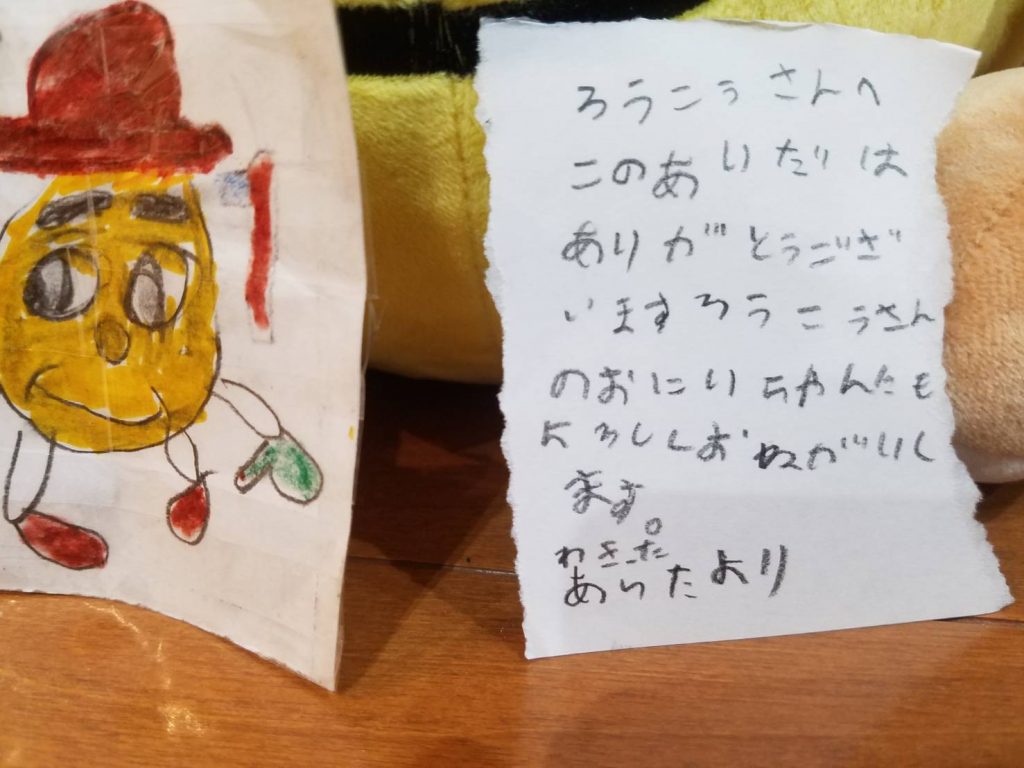 ろうこうさんへ
このあいだは
ありがとうござ
いますろうこうさん
のおにいちゃんたも
よろししおねがいし
ます。
わきた
あいたより